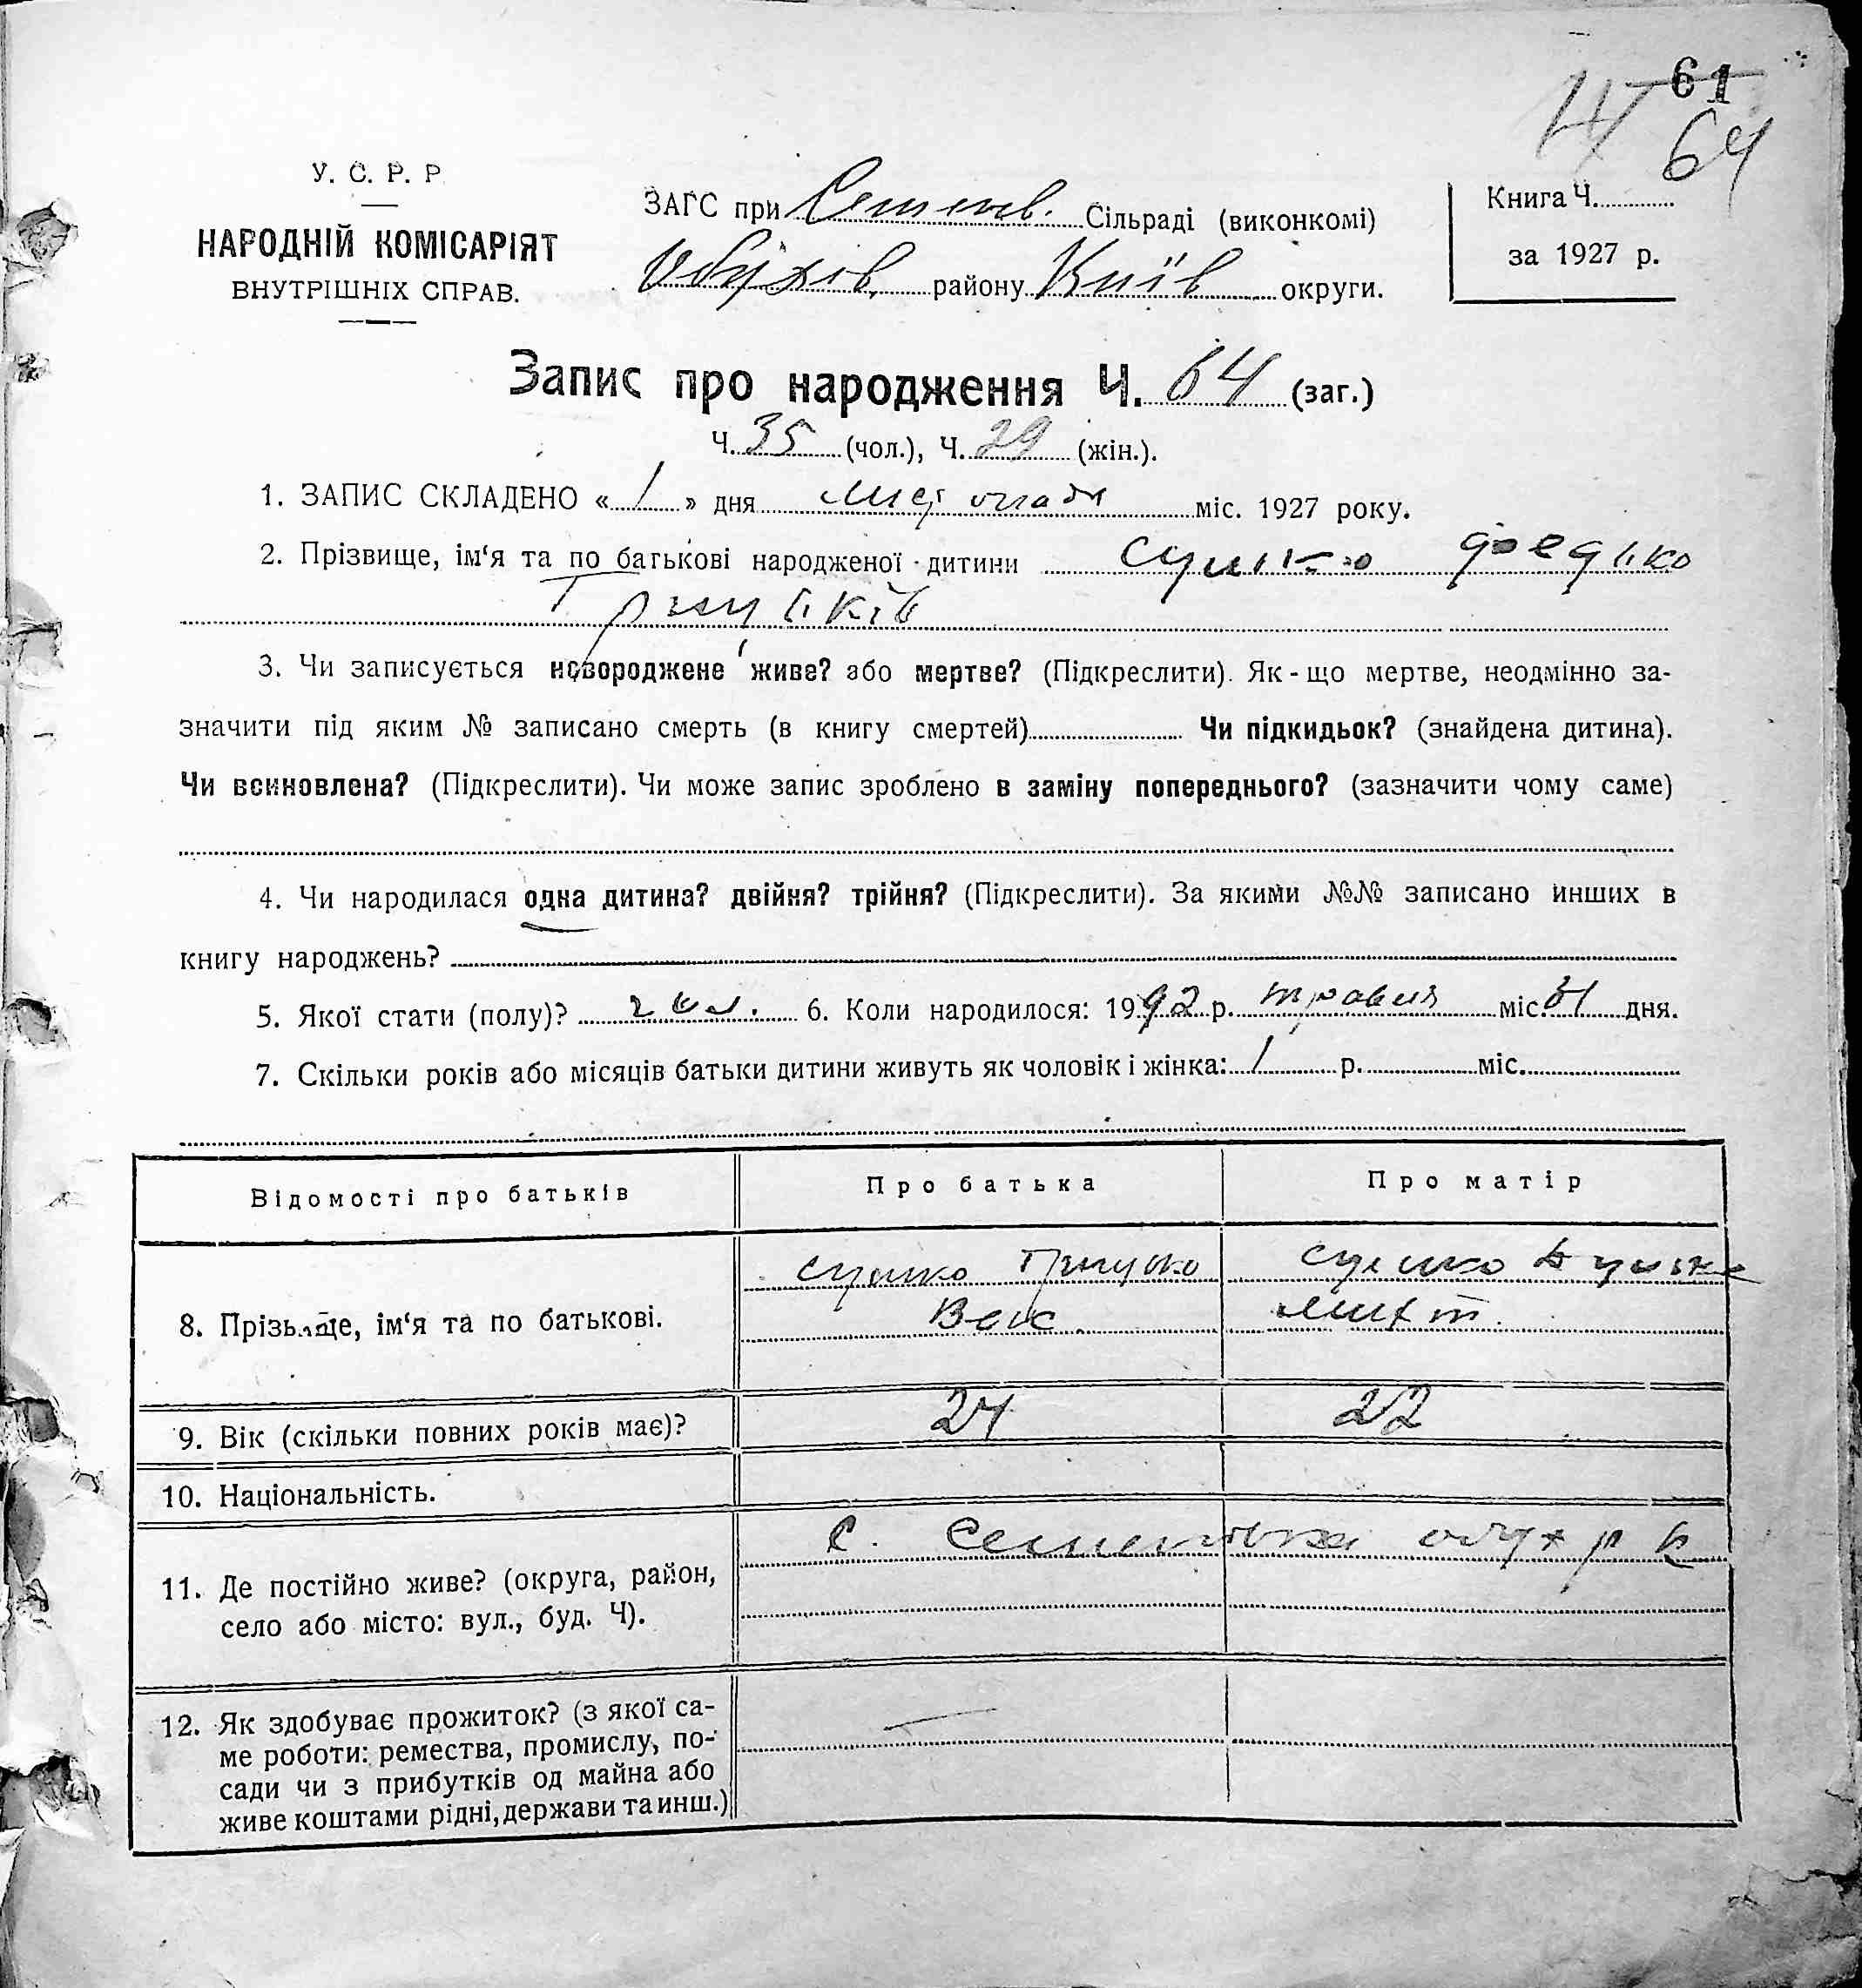 61
64
У. С. Р. Р.
НАРОДНІЙ КОМІСАРІЯТ
ВНУТРІШНІХ СПРАВ.
ЗАГС при Семенів. Сільраді (виконкомі)
Обухів. району Київ округи.
Книга Ч.
за 1927 р.
Запис про народження Ч. 64 (заг.)
Ч. 35 (чол.), Ч. 29 (жін.).
1. ЗАПИС СКЛАДЕНО « 1 » дня листопада міс. 1927 року.
2. Прізвище, ім‘я та по батькові народженої дитини Сушко Федько
Грицьків
3. Чи записується новороджене живе? або мертве? (Підкреслити). Як-що мертве, неодмінно за-
значити під яким № записано смерть (в книгу смертей) Чи підкидьок? (знайдена дитина).
Чи всиновлена? (Підкреслити). Чи може запис зроблено в заміну попереднього? (зазначити чому саме)
4. Чи народилася одна дитина? двійня? трійня? (Підкреслити). За якими №№ записано инших в
книгу народжень?
5. Якої стати (полу)? чол. 6. Коли народилося: 19 р. травня міс. дня.
7. Скільки років або місяців батьки дитини живуть як чоловік і жінка: 1 р. міс.
Відомості про батьків
Про батька
Про матір
8. Прізвище, ім‘я та по батькові.
Сушко Грицько
Сушко
9. Вік (скільки повних років має)?
24
22
10. Національність.
11. Де постійно живе? (округа, район,
село або місто: вул., буд. Ч).
с. Семенівка обух р К
12. Як здобуває прожиток? (з якої са-
ме роботи: ремества, промислу, по-
сади чи з прибутків од майна або
живе коштами рідні, держави та инш.)